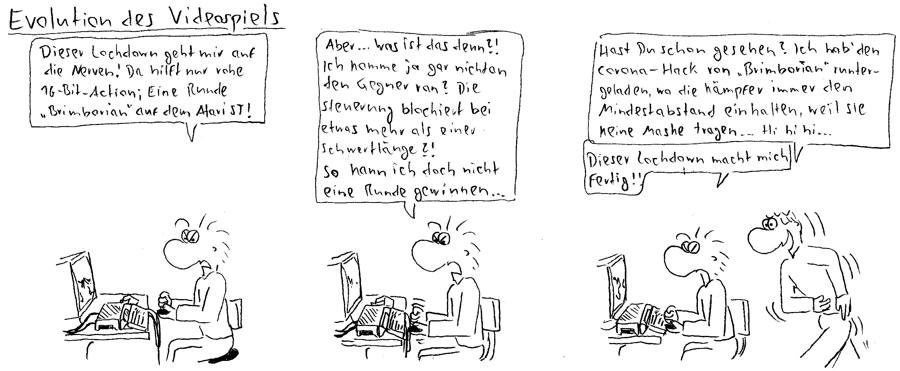 Evolution des Videospiels
Dieser Lockdown geht mir auf
die Nerven! Da hilft nur rohe
16-Bit-Action; Eine Runde
„Brimborian“ auf dem Atari ST!
Aber... was ist das denn?!
Ich komme ja gar nicht an
den Gegner ran? Die
Steuerung blockiert bei
etwas mehr als einer
Schwertlänge?!
So kann ich doch nicht
eine Runde gewinnen...
Hast Du schon gesehen? Ich hab' den
Corona-Hack von „Brimborian“ runter-
geladen, wo die Kämpfer immer den
Mindestabstand einhalten, weil sie
keine Maske tragen... Hi hi hi...
Dieser Lockdown macht mich
fertig!!